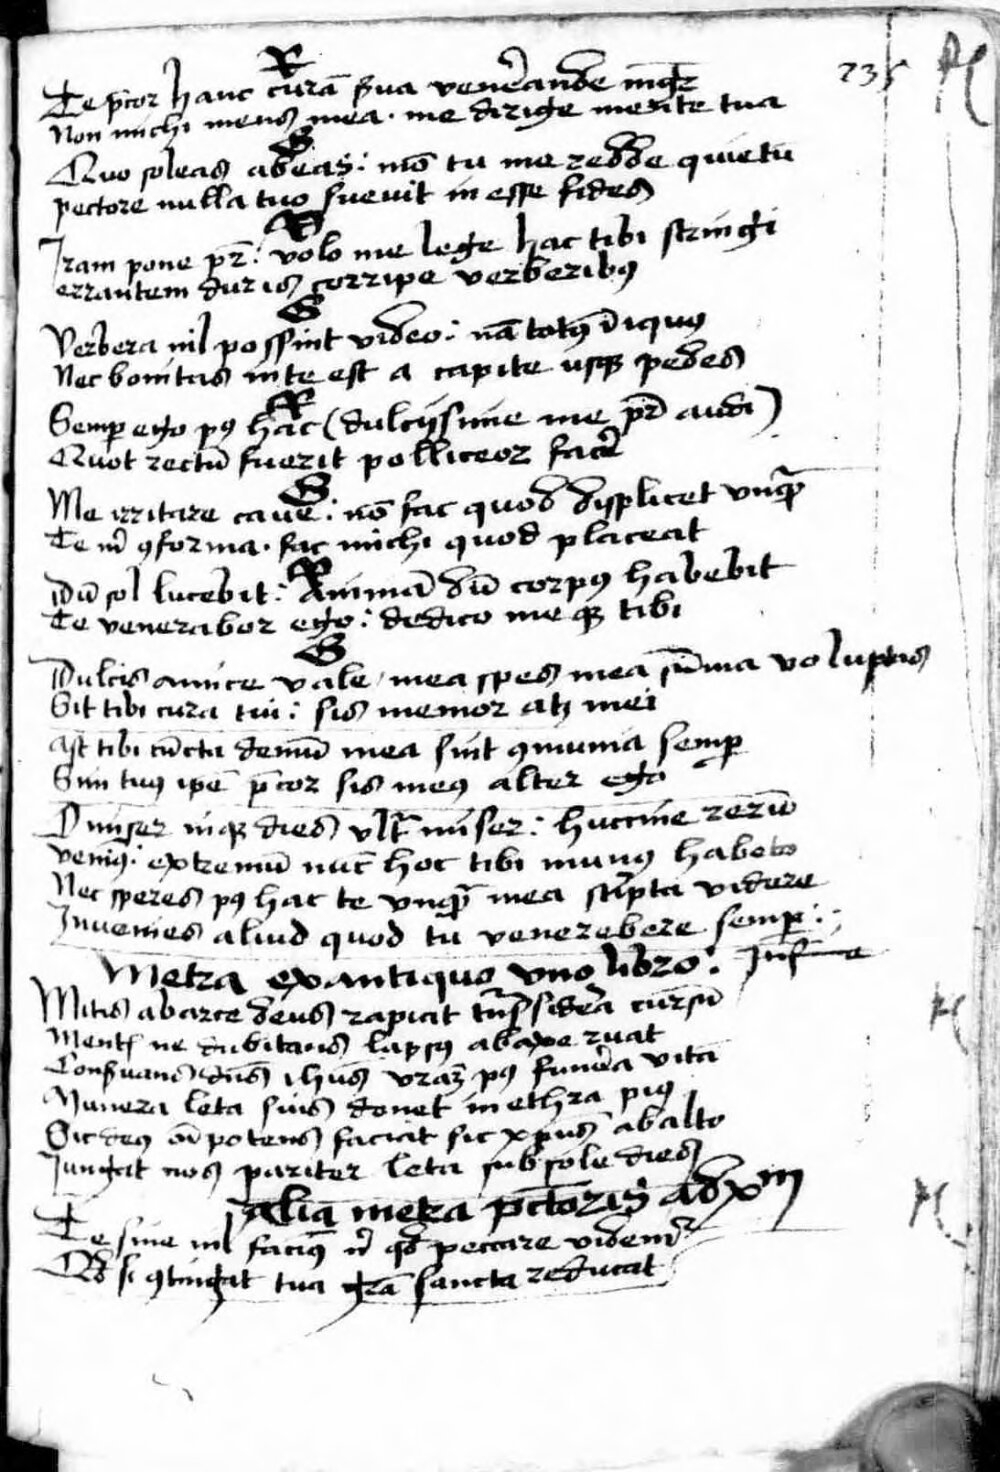 235
R
Te p̄cor hanc curā s̄ua venerande mḡr
Non michi mens mea · me dirige mente tua
S
Quo soleas abeas : nō tu me redde quietū
pectore nulla tuo suevit inesse fides
R
Iram pone pr̄ : volo me lege hac tibi stringi
errantem duris corripe verberibꝰ
S
Verbera nil possint video : nā totꝰ īiquus
Nec bonitas in te est a capite usqꝫ pedes
R
Semꝑ ego pꝰ hac (dulcissime me pr̄ audi)
Quot rectū fuerit polliceor facē
S
Me irritare cave : nō fac quod displicet unqꝫ
Te m̄ ꝯforma · fac michi quod placeat
R
Dū sol lucebit : Animā dū corpꝰ habebit
Te venerabor ego : dedico meqꝫ tibi
S
Dulcis amice vale / mea spes mea sūma voluptas
Sit tibi cura tui : sis memor atqꝫ mei
Ast tibi cūcta demū mea sint ꝯmunia semꝑ
Sim tuꝰ ipē p̄cor sis meꝰ alter ego
O miser inqꝫ dies vltr̄ miser : huccine rerū
venimꝰ : extremū nūc hoc tibi munꝰ habeto
Nec speres pꝰ hac te unqꝫ mea scripta videre
Invenies aliud quod tu venerebere semꝑ :
Metra ex antiquo vno libro :
Mitis ab arce deus rapiat sidera cursū
Ment ne dubitans lapsꝰ ab axe ruat
Conſvans dn̄s ihus vraꝫ pꝰ funera vitā
Munera leta suis donet in ethra piꝰ
Sic deꝰ oīpotens faciat sic xp̄us ab alto
Iungat nos pariter leta sub sole dies
alia metra pctoris ad xm
Te sine nil facimꝰ n̄ qd peccare videmr
Qd si ꝯtingat tua grā sancta reducat